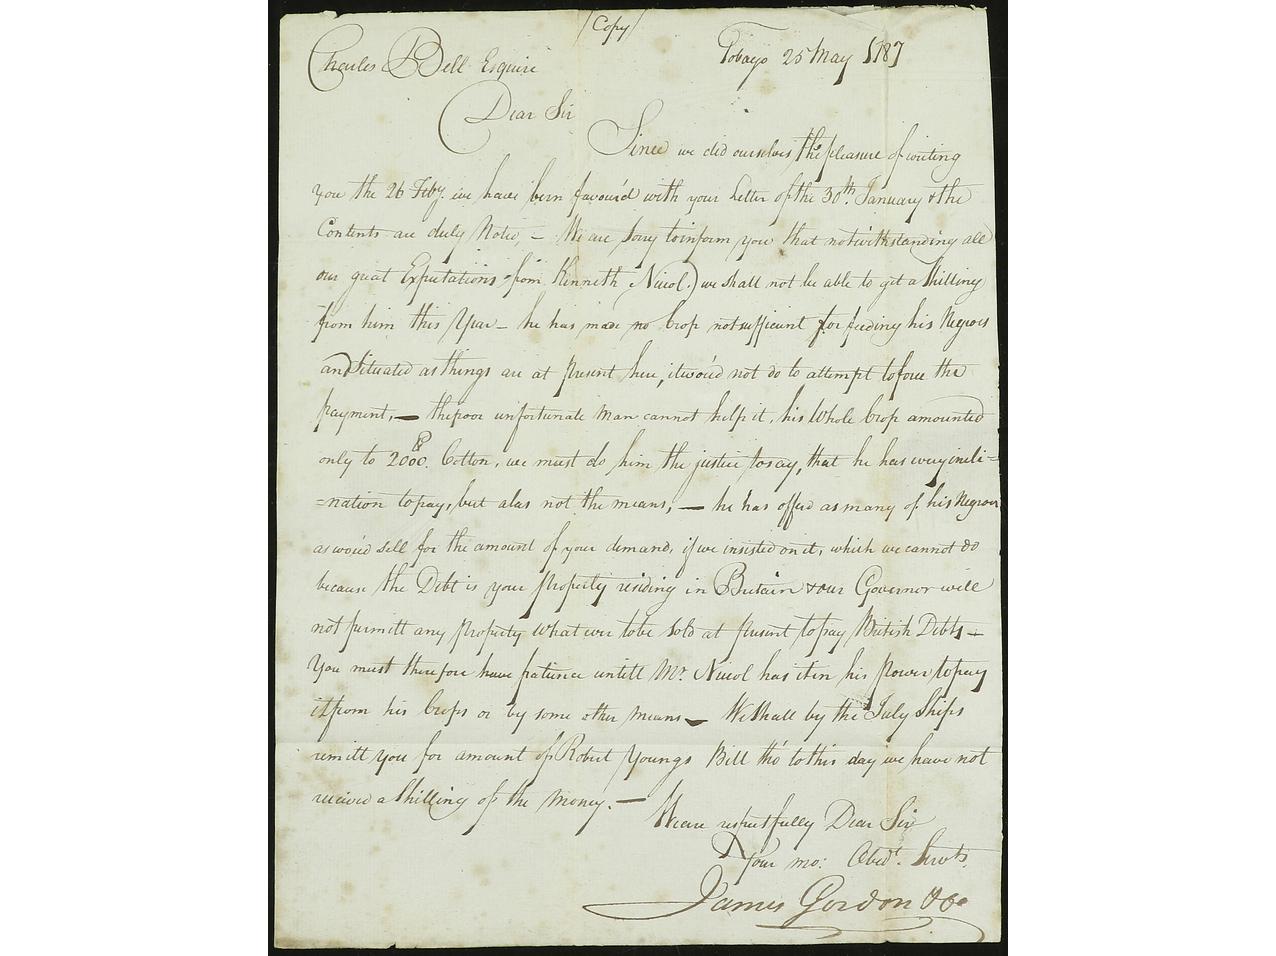 (Copy)
Charles Bell Esquire
Tobago 25 May 1787
Dear Sir
Since we did ourselves the pleasure of writing
you the 26 Feby. we have been favour'd with your Letter of the 30th. January & the
Contents are duly Noted, – We are sorry to inform you that notwithstanding all
our great Expectations from Kenneth Nicol, we shall not be able to get a Shilling
from him this Year – he has made no Crop not sufficient for feeding his Negroes
and Situated as things are at present here, it wou'd not do to attempt to force the
payment, – the poor unfortunate Man cannot help it, his Whole Crop amounted
only to 2000 lb. Cotton, we must do him the justice to say, that he has every incli=
=nation to pay, but alas not the means, – he has offerd as many of his Negroes
as wou'd sell for the amount of your demand, if we insisted on it, which we cannot do
because the Debt is your property residing in Britain & our Governor will
not permitt any property what ever to be Sold at present to pay British Debts –
You must therefore have patience untill Mr. Nicol has it in his Power to pay
it from his Crops or by some other Means – We Shall by the July Ships
remitt you for amount of Robert Youngs Bill tho' to this day we have not
received a Shilling of the Money. –
We are respectfully Dear Sir
Your mo: Obedt. Servts.
James Gordon & Co